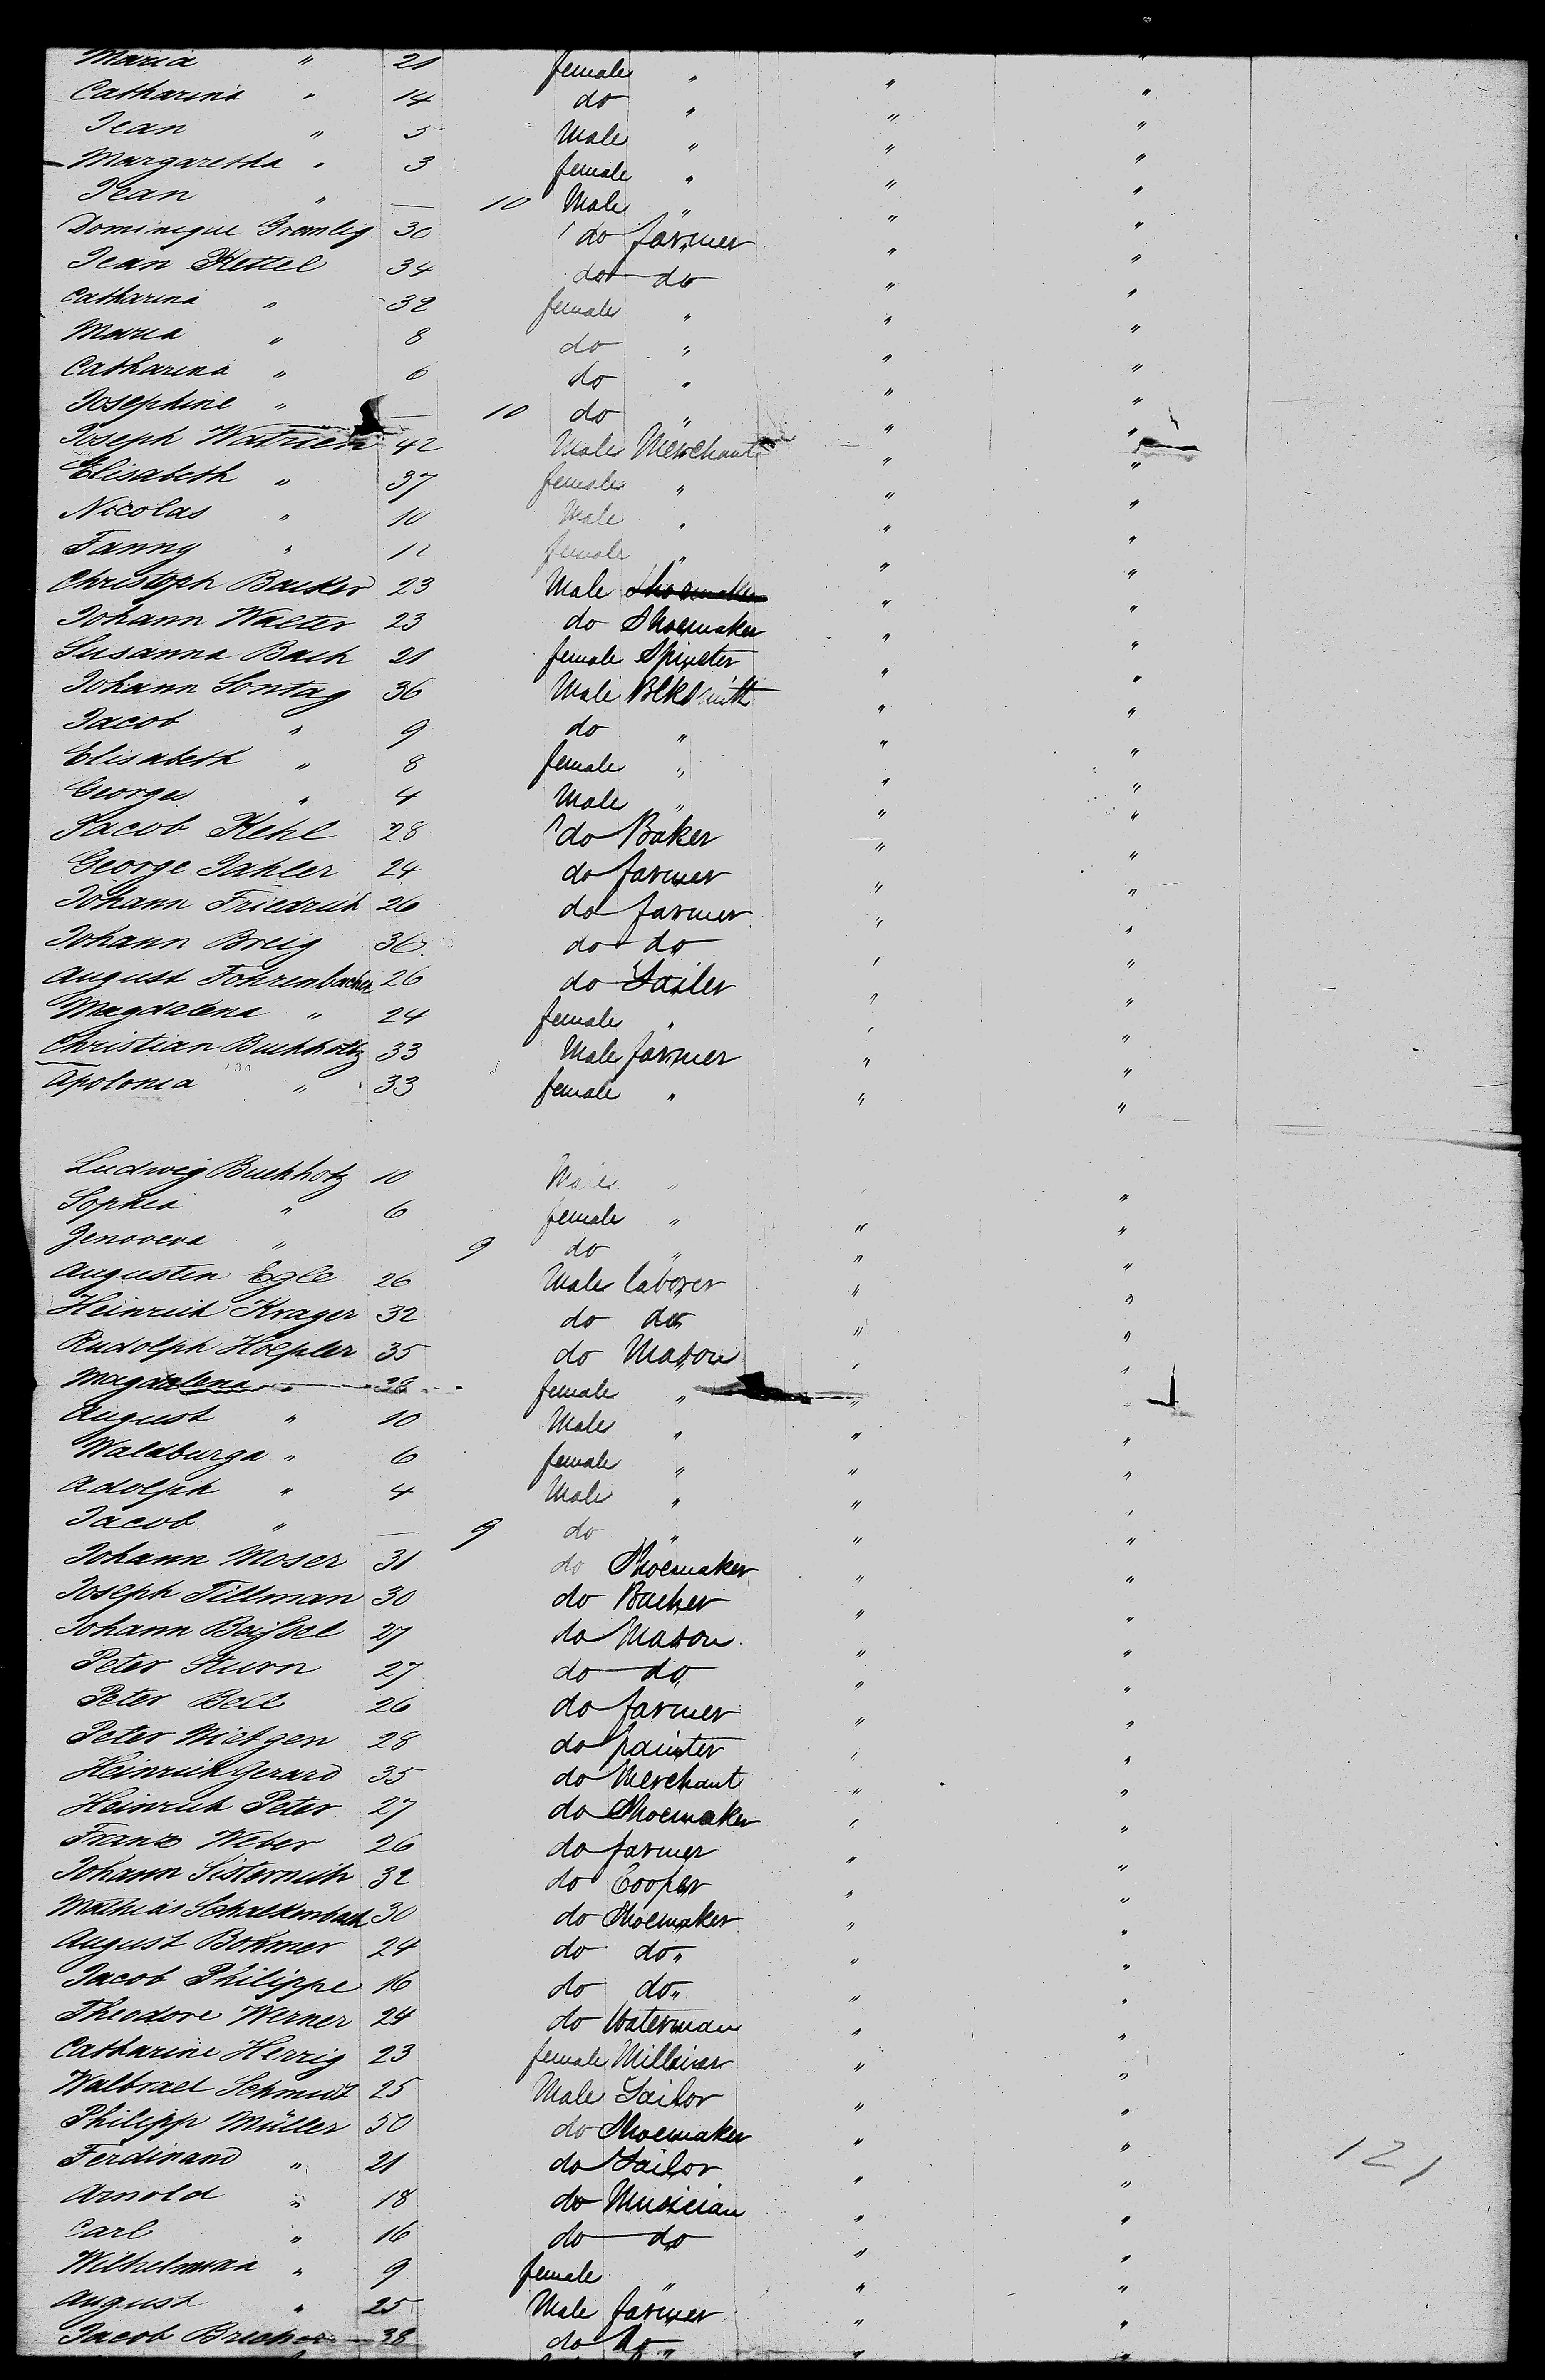 Maria " 21 female " " "
Catharina " 14 do " " "
Jean " 5 Male " " "
Margaretha " 3 female " " "
Jean " — 10 Male " " "
Dominique Gremlig 30 do farmer " "
Jean Kettel 34 do do " "
Catharina " 32 female " " "
Maria " 8 do " " "
Catharina " 6 do " " "
Josephine " — 10 do " " "
Joseph Watrien 42 Male Merchant " "
Elisabeth " 37 female " " "
Nicolas " 10 Male " " "
Fanny " 12 female " " "
Christoph Backer 23 Male Shoemaker " "
Johann Walter 23 do Shoemaker " "
Susanna Bach 21 female Spinster " "
Johann Sontag 36 Male Blksmith " "
Jacob " 9 do " " "
Elisabeth " 8 female " " "
George " 4 Male " " "
Jacob Kehl 28 do Baker " "
George Jahler 24 do farmer " "
Johann Friedrich 26 do farmer " "
Johann Breig 36 do do " "
August Fohrenbacher 26 do Sailer " "
Magdalena " 24 female " " "
Christian Buchholtz 33 Male farmer " "
Apolonia " 33 female " " "
Ludwig Buchholz 10 Male " " "
Sophia " 6 female " " "
Genoveva " 9 do " " "
Augustin Egle 26 Male laborer " "
Heinrich Krager 32 do do " "
Rudolph Hoepler 35 do Mason " "
Magdalena " 28 female " " "
August " 10 Male " " "
Waldburga " 6 female " " "
Adolph " 4 Male " " "
Jacob " — 9 do " " "
Johann Moser 31 do Shoemaker " "
Joseph Tillman 30 do Bacher " "
Johann Beissel 27 do Mason " "
Peter Sturn 27 do do " "
Peter Bell 26 do farmer " "
Peter Mietgen 28 do painter " "
Heinrich Gerard 35 do Merchant " "
Heinrich Peter 27 do Shoemaker " "
Franz Weber 26 do farmer " "
Johann Sisternich 32 do Cooper " "
Mathias Schalkenbach 30 do Shoemaker " "
August Bohmer 24 do do " "
Jacob Philippe 16 do do " "
Theodore Werner 24 do Waterman " "
Catharine Herrig 23 female Milliner " "
Walbrael Schmidt 25 Male Sailor " "
Philipp Müller 50 do Shoemaker " "
Ferdinand " 21 do Sailor " "
121
Arnold " 18 do Musician " "
Carl " 16 do do " "
Wilhelmina " 9 female " " "
August " 25 Male farmer " "
Jacob Brecher 38 do do " "